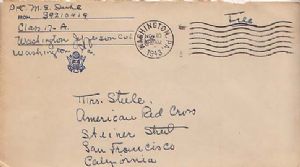 Pvt. M. S.
39210419
Class 17-A.
Washington Jefferson Col
Washington
WASHINGTON, PA.
1943
Free
Mrs. Steele
American Red Cross
Steiner Street
San Francisco
California